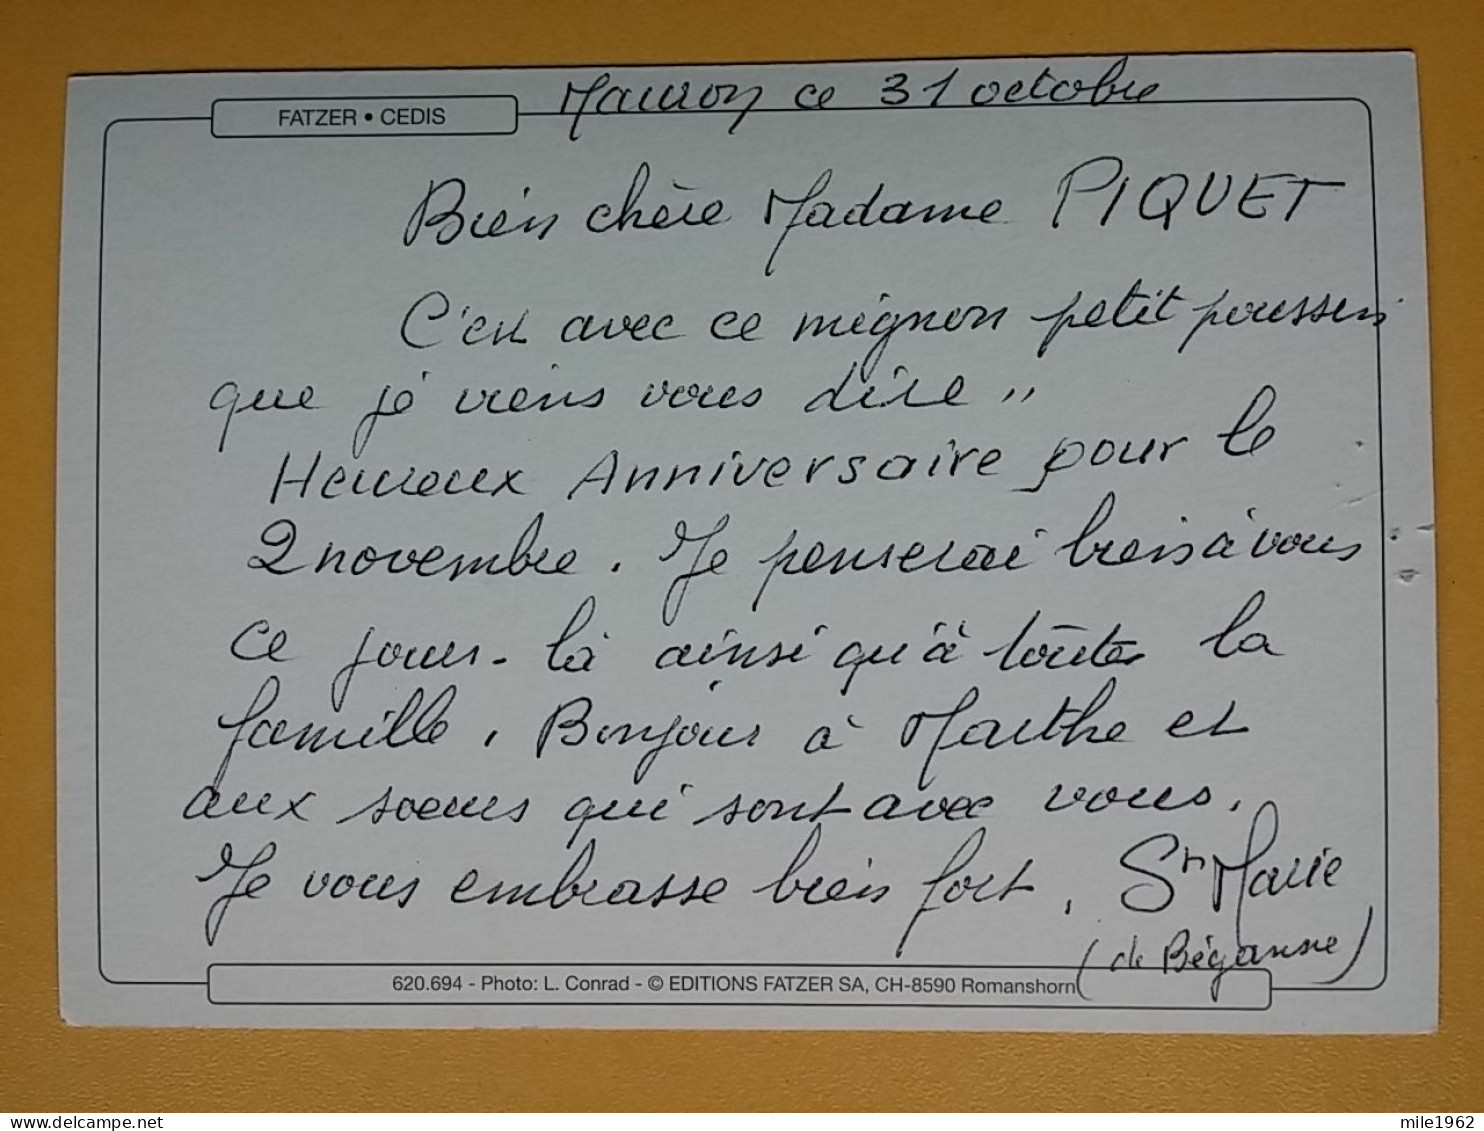 Mauron ce 31 octobre
FATZER • CEDIS
Bien chère Madame PIQUET
C'est avec ce mignon petit poussin
que je viens vous dire "
Heureux Anniversaire pour le
2 novembre. Je penserai bien à vous
ce jour-là ainsi qu'à toute la
famille. Bonjour à Marthe et
aux soeurs qui sont avec vous.
Je vous embrasse bien fort. Sr Marie
(de Béganne)
620.694 - Photo: L. Conrad - © EDITIONS FATZER SA, CH-8590 Romanshorn
mile1962